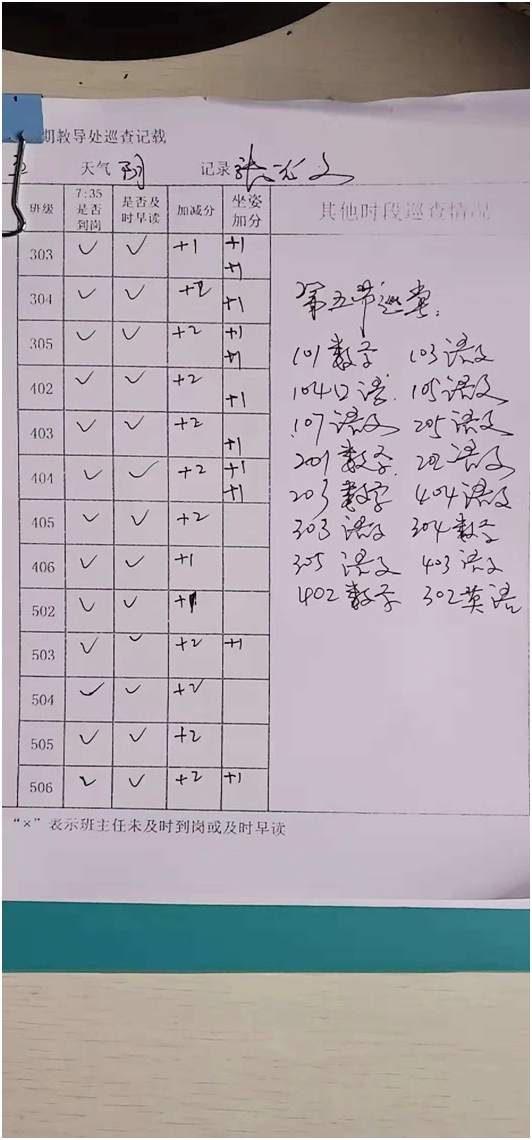 期教导处巡查记载
五 天气 雨 记录 张
班级 7:35是否到岗 是否及时早读 加减分 坐姿加分 其他时段巡查情况
303 ✓ ✓ +1 +1 +1
304 ✓ ✓ +2 +1
305 ✓ ✓ +2 +1 +1
402 ✓ ✓ +2 +1
403 ✓ ✓ +2 +1
404 ✓ ✓ +2 +1 +1
405 ✓ ✓ +2
406 ✓ ✓ +1
502 ✓ ✓ +1
503 ✓ ✓ +2 +1
504 ✓ ✓ +2
505 ✓ ✓ +2
506 ✓ ✓ +2 +1
第五节巡堂:
101 数学 103 语文
104 口语 105 语文
107 语文 205 语文
201 数学 202 语文
203 数学 404 语文
303 语文 304 数学
305 语文 403 语文
402 数学 302 英语
“×”表示班主任未及时到岗或及时早读